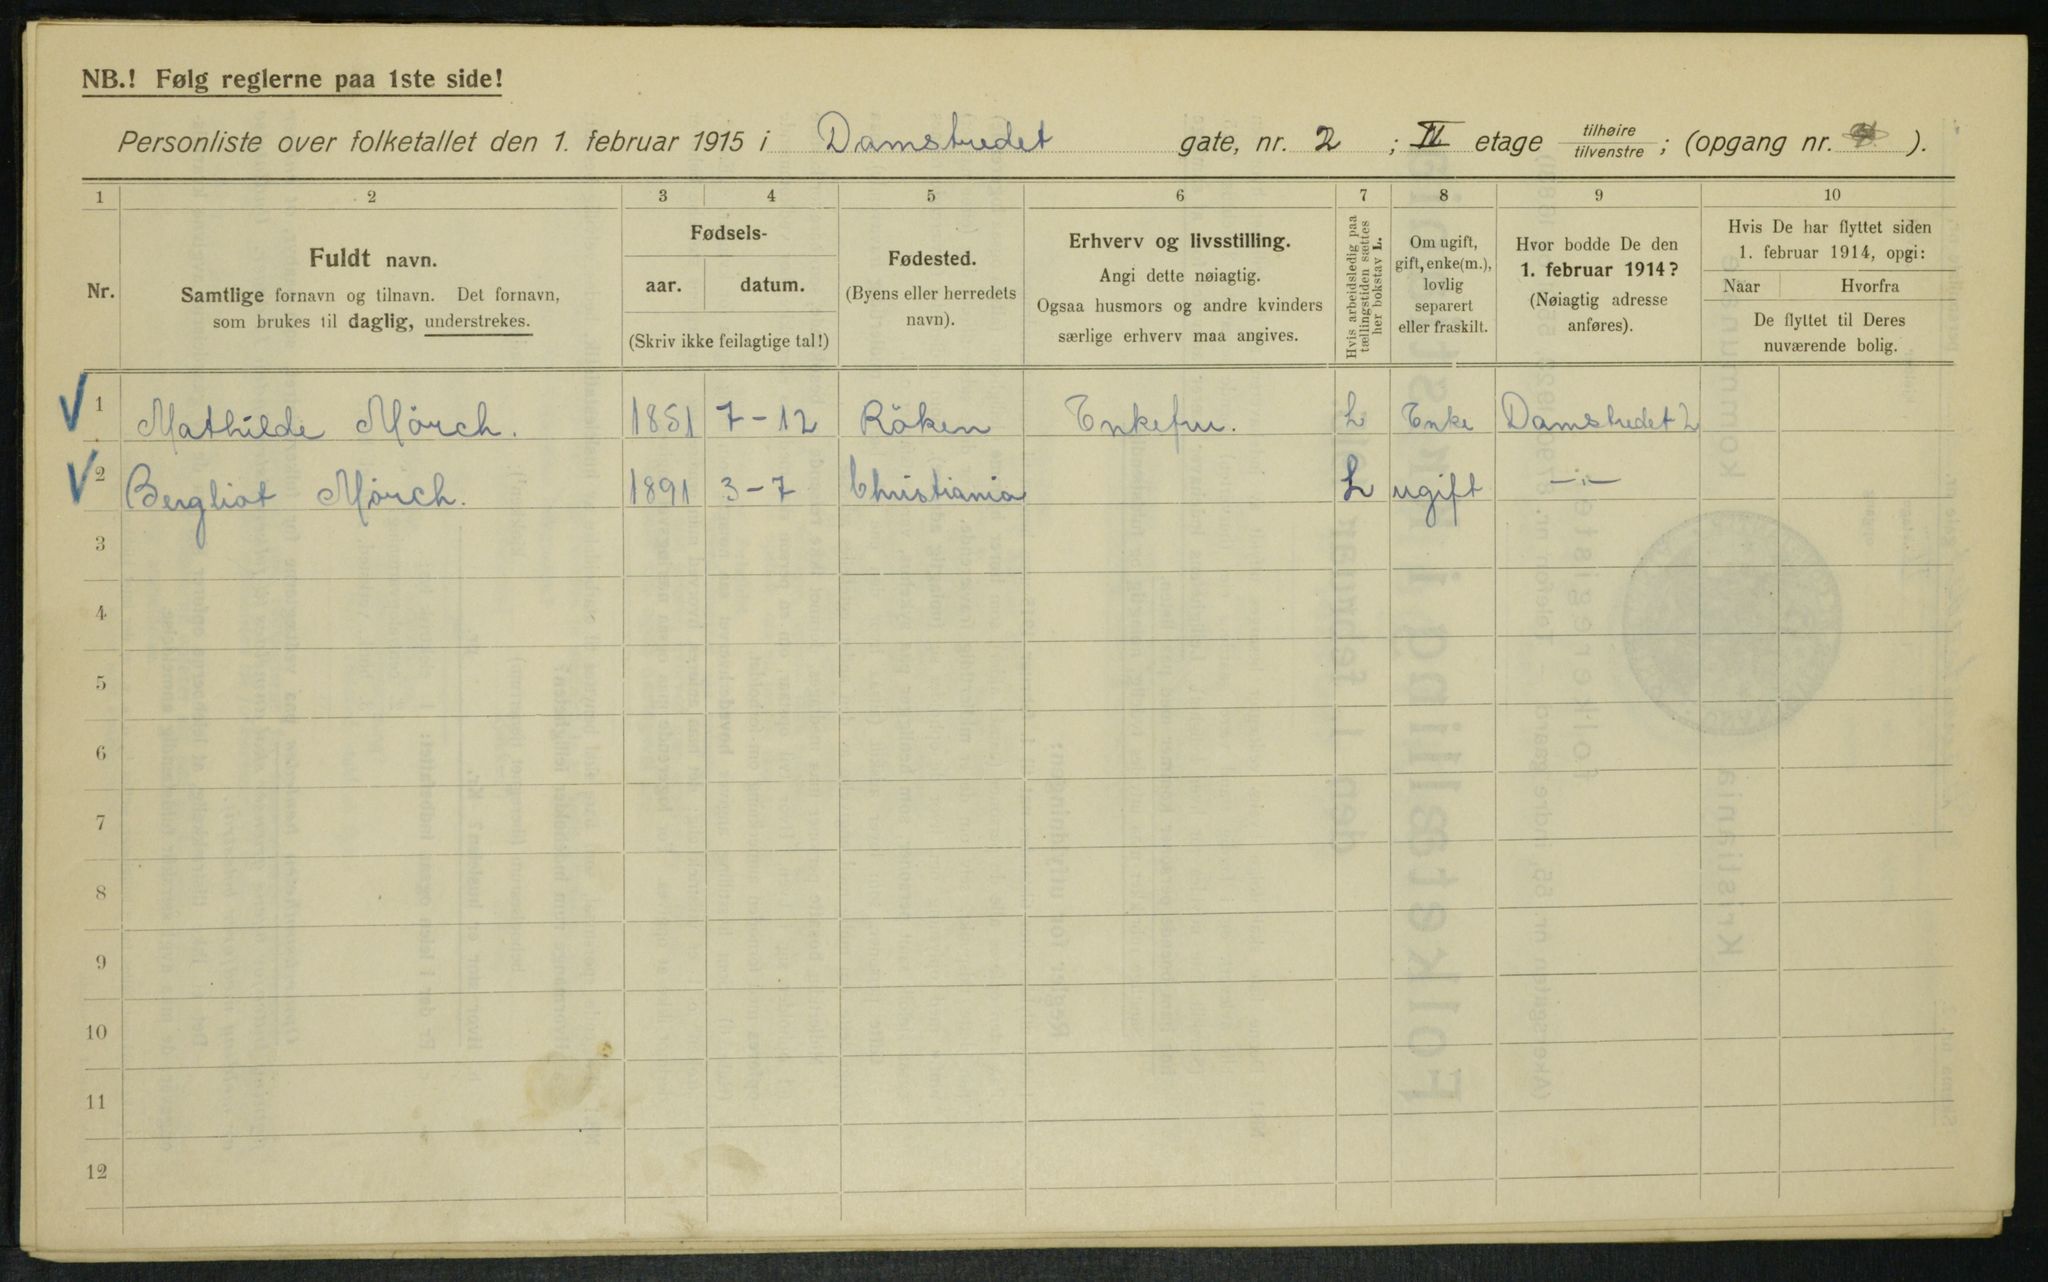 NB.! Følg reglerne paa 1ste side!
Personliste over folketallet den 1. februar 1915 i Damstredet gate, nr. 2 ; II etage tilhøire tilvenstre ; (opgang nr. ).
1 2 3 4 5 6 7 8 9 10
Nr.
Fuldt navn.
Samtlige fornavn og tilnavn. Det fornavn,
som brukes til daglig, understrekes.
Fødsels-
aar. datum.
(Skriv ikke feilagtige tal!)
Fødested.
(Byens eller herredets
navn).
Erhverv og livsstilling.
Angi dette nøiagtig.
Ogsaa husmors og andre kvinders
særlige erhverv maa angives.
Hvis arbeidsledig paa
tællingstiden sættes
her bokstav L.
Om ugift,
gift, enke(m.),
lovlig
separert
eller fraskilt.
Hvor bodde De den
1. februar 1914?
(Nøiagtig adresse
anføres).
Hvis De har flyttet siden
1. februar 1914, opgi:
Naar Hvorfra
De flyttet til Deres
nuværende bolig.
1 Mathilde Mörch. 1851 7-12 Röken Enkefru. L Enke Damstredet 2
2 Bergliot Mörch. 1891 3-7 Christiania L ugift -"-
3
4
5
6
7
8
9
10
11
12